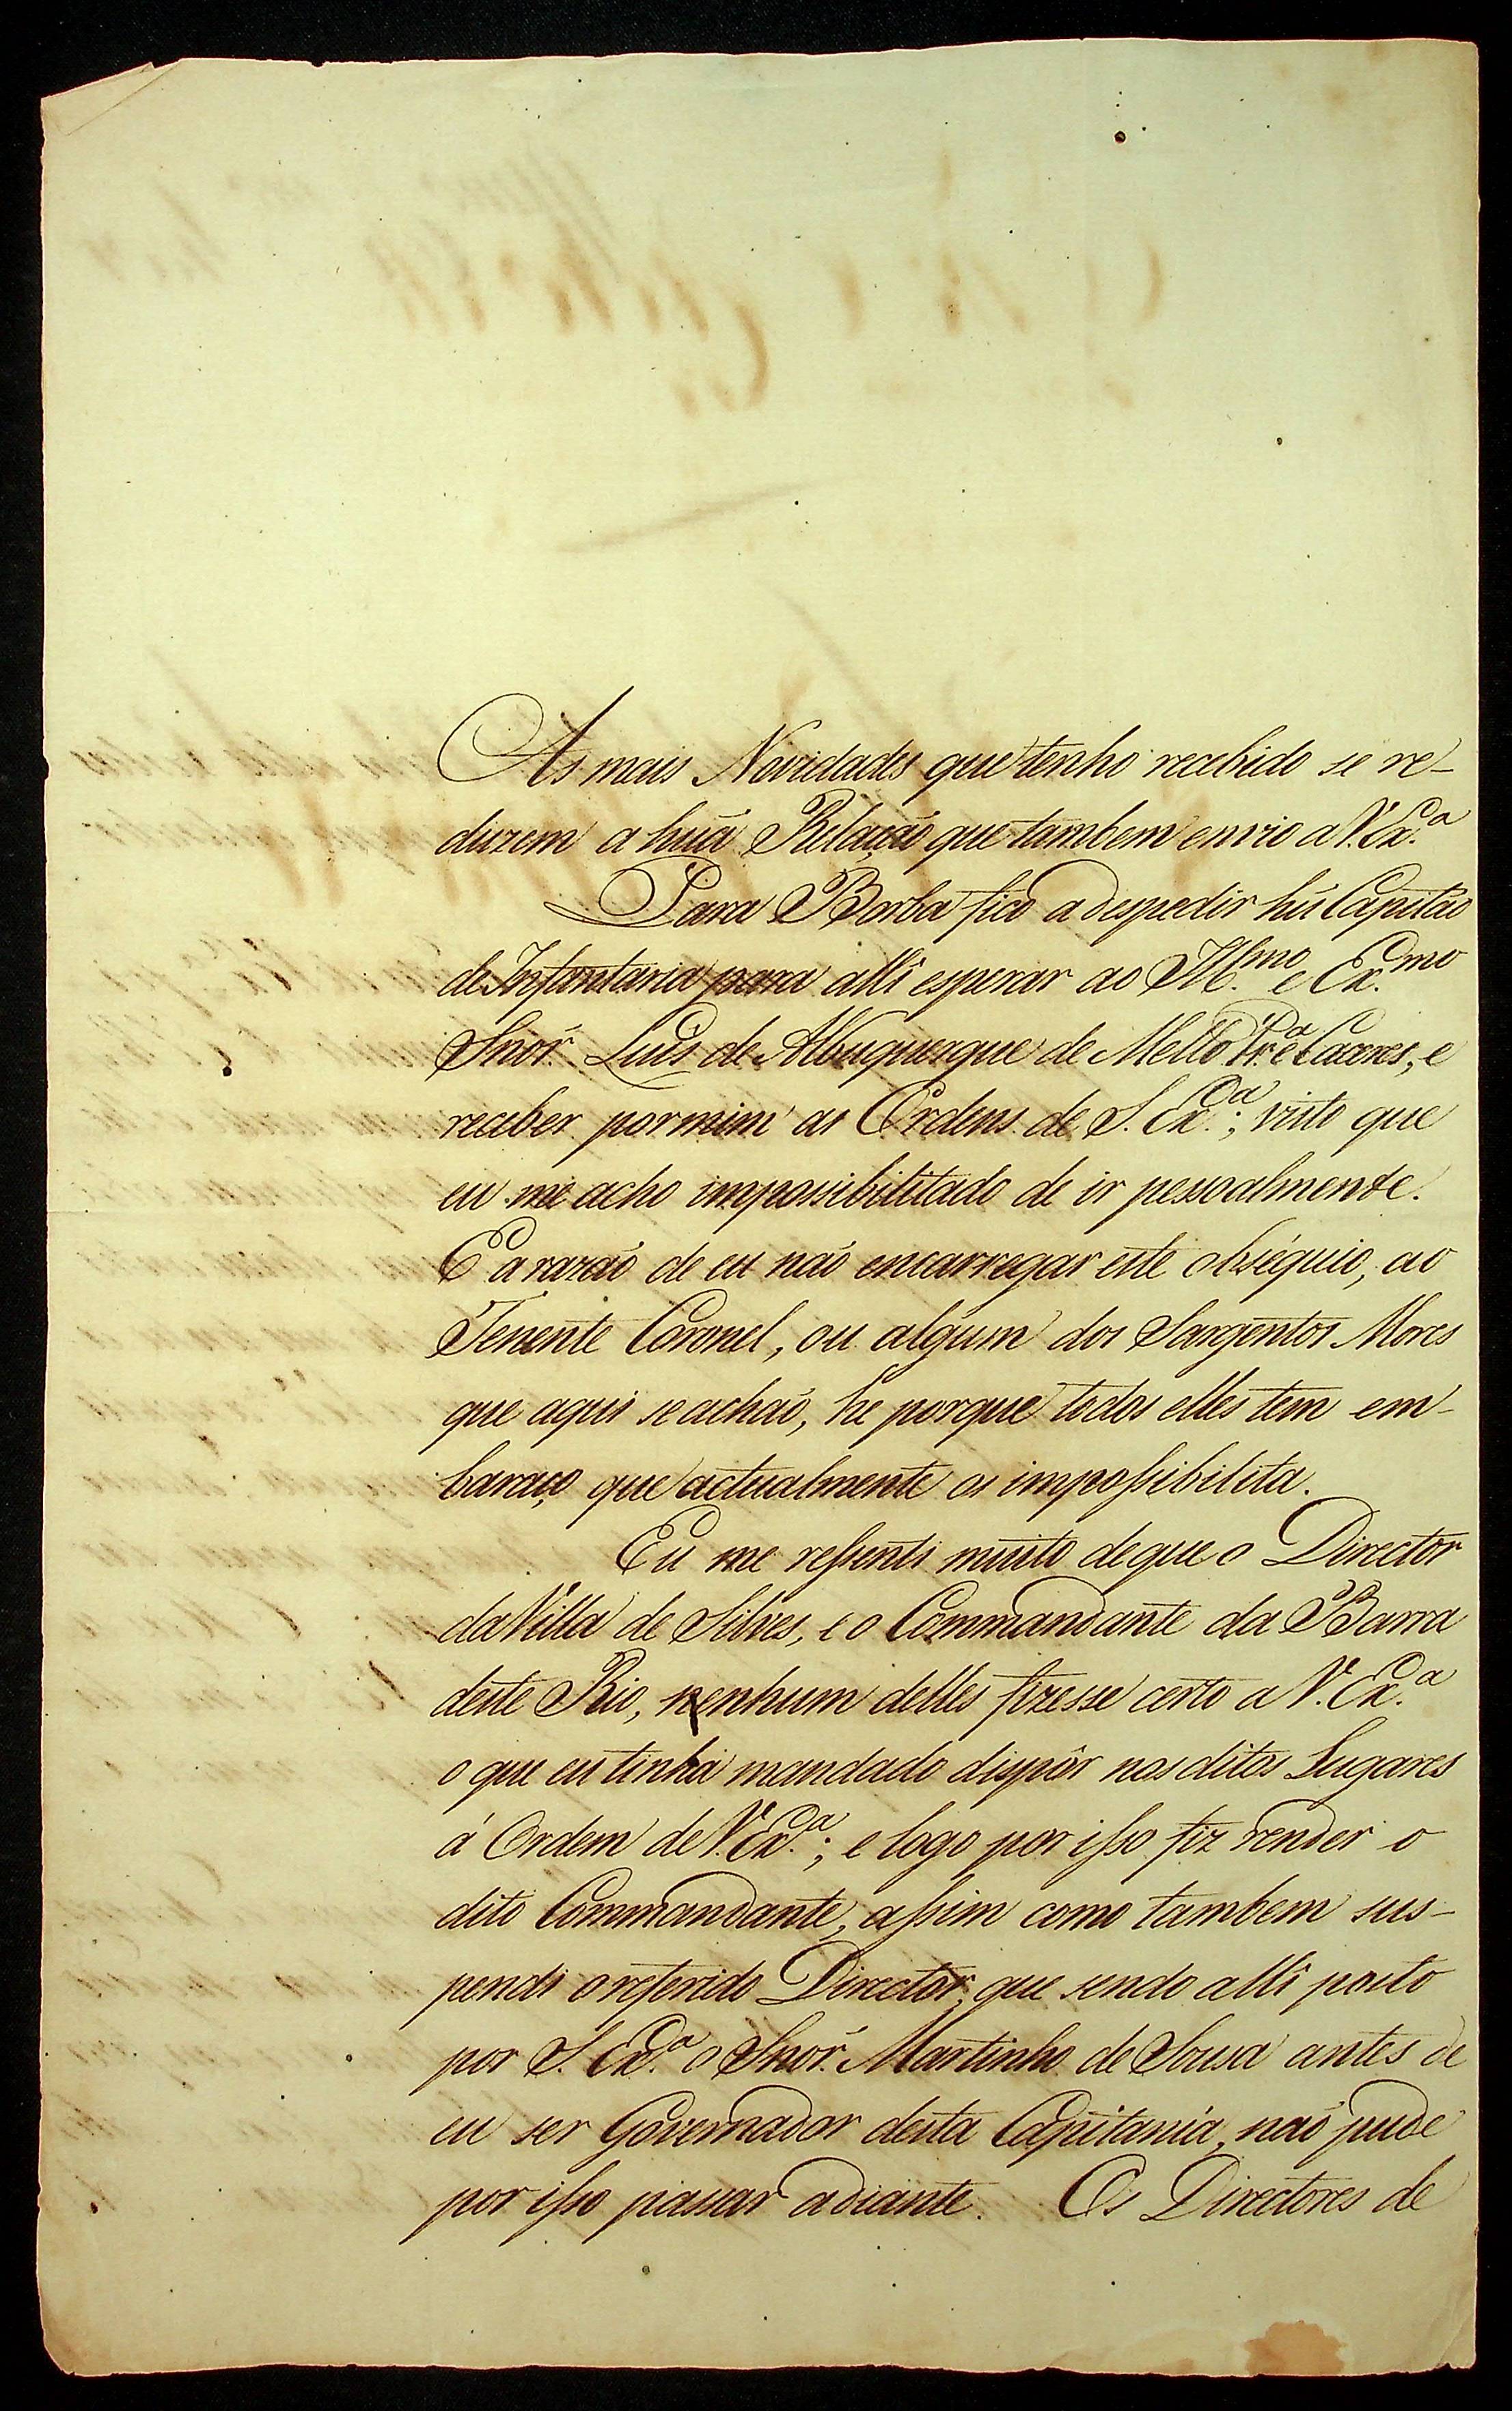 As mais Novidades que tenho recebido se re-
duzem a huã Relação que tambem envio a V. Ex.ª
Para Borba fico a despedir hũ Capitão
de Infantaria para alli esperar ao Ill.mo e Ex.mo
Snor̃ Luis de Albuquerque de Mello Pr.ª e Caceres, e
receber por mim as Ordens de S. Ex.ª; visto que
eu me acho impossibilitado de ir pessoalmente.
E a razaõ de eu naõ encarregar este obséquio, ao
Tenente Coronel, ou algum dos Sargentos Mores
que aqui se achaõ, he porque todos elles tem em-
baraço que actualmente os impoſsibilita.
Eu me reſsenti muito de que o Director
da Villa de Silves, e o Commandante da Barra
deste Rio, nenhum delles fizesse certo a V. Ex.ª
o que eu tinha mandado dispôr nos ditos Lugares
á Ordem de V. Ex.ª; e logo por iſso fiz render o
dito Commandante, aſsim como tambem sus-
pendi o referido Director, que sendo alli posto
por S. Ex.ª o Snor̃ Martinho de Sousa antes de
eu ser Governador desta Capitania, naõ pude
por iſso passar adiante. Os Directores de